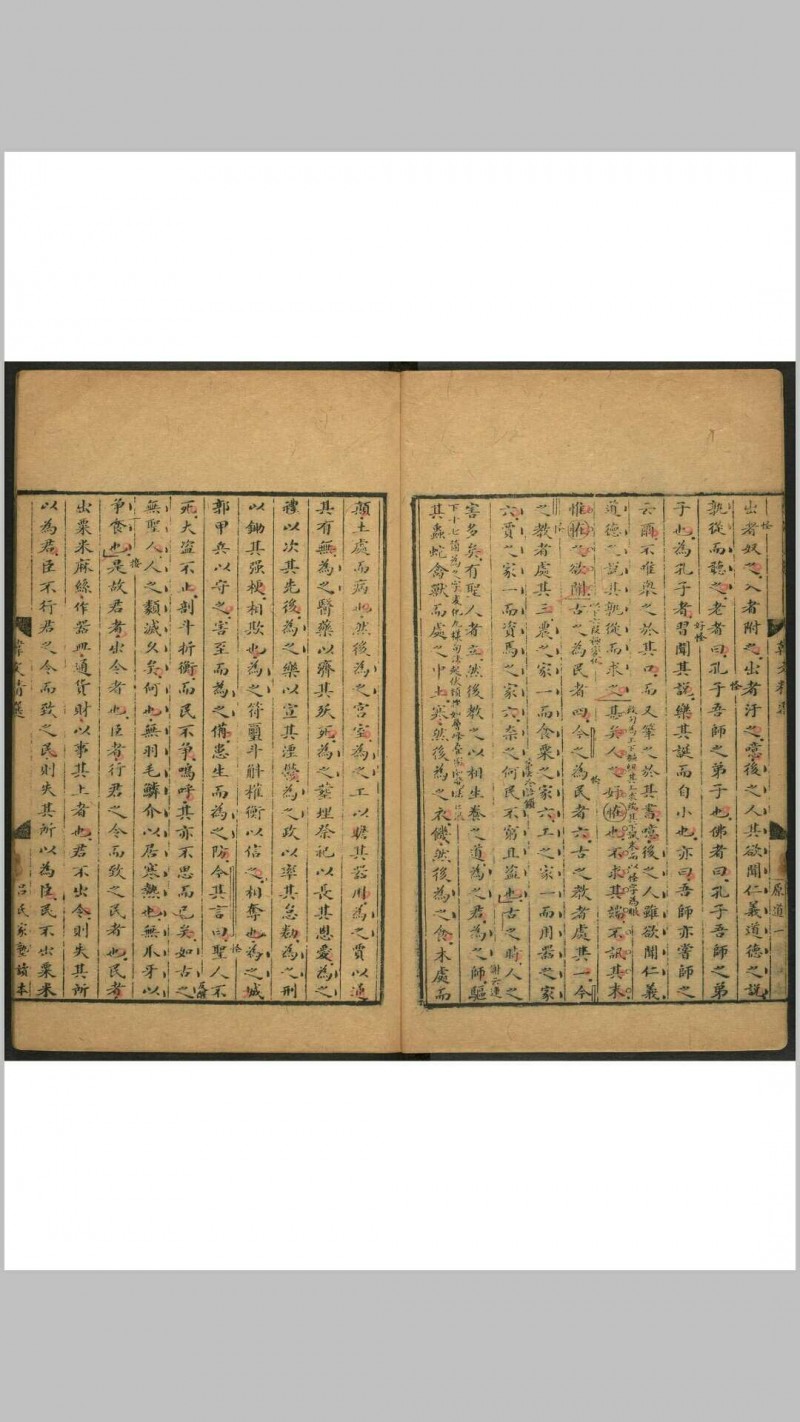 原道一
出者奴之入者附之出者汙之噫後之人其欲聞仁義道德之說
孰從而聽之老者曰孔子吾師之弟子也佛者曰孔子吾師之弟
子也為孔子者習聞其說樂其誕而自小也亦曰吾師亦嘗師之
云爾不惟舉之於其口而又筆之於其書噫後之人雖欲聞仁義
道德之說其孰從而求之甚矣人之好恠也不求其端不訊其末
惟恠之欲聞古之為民者四今之為民者六古之教者處其一今
之教者處其三農之家一而食粟之家六工之家一而用器之家
六賈之家一而資焉之家六奈之何民不窮且盜也古之時人之
害多矣有聖人者立然後教之以相生養之道為之君為之師驅
其蟲蛇禽獸而處之中土寒然後為之衣饑然後為之食木處而
顛土處而病也然後為之宮室為之工以贍其器用為之賈以通
具有無為之醫藥以濟其殀死為之葬埋祭祀以長其恩愛為之
禮以次其先後為之樂以宣其湮鬱為之政以率其怠勌為之刑
以鋤其强梗相欺也為之符璽斗斛權衡以信之相奪也為之城
郭甲兵以守之害至而為之備患生而為之防今其言曰聖人不
死大盜不止剖斗折衡而民不爭嗚呼其亦不思而已矣如古之
無聖人人之類滅久矣何也無羽毛鱗介以居寒熱也無爪牙以
爭食也是故君者出令者也臣者行君之令而致之民者也民者
出粟米麻絲作器皿通貨財以事其上者也君不出令則失其所
以為君臣不行君之令而致之民則失其所以為臣民不出粟米
韓文精選
呂氏家塾讀本